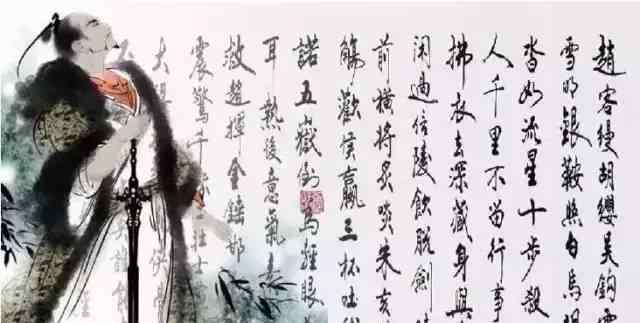 趙客縵胡纓吳鉤霜
雪明銀鞍照白馬颯
沓如流星十步殺
人千里不留行事
拂衣去深藏身與
閑過信陵飲脫劍膝
前橫將炙啖朱亥
觴勸侯嬴三杯吐然
諾五嶽倒為輕眼
耳熱後意氣素
救趙揮金鎚邯
震驚千秋二壯士
大